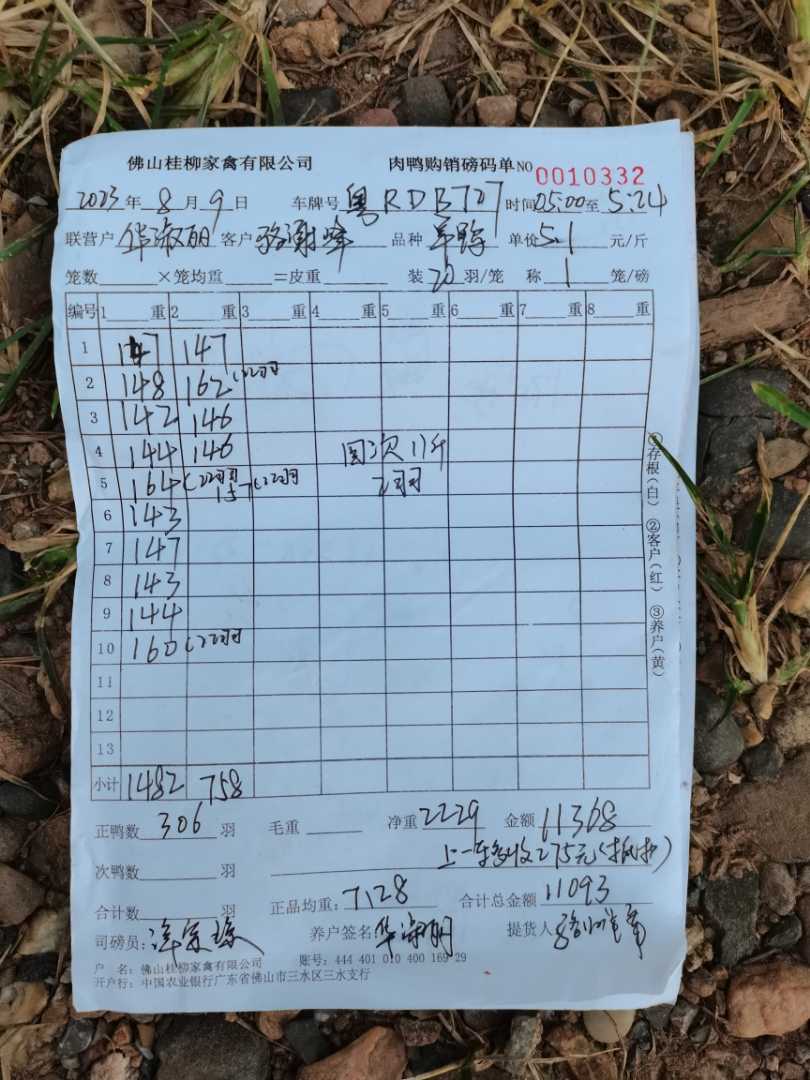 佛山桂柳家禽有限公司 肉鸭购销磅码单NO 0010332
2023年8月9日 车牌号 粤RDB727 时间05:00至5:24
联营户 华淑丽 客户 骆谢峰 品种 单价5.1元/斤
笼数 ×笼均重 =皮重 装20羽/笼 称1笼/磅
编号 1 重 2 重 3 重 4 重 5 重 6 重 7 重 8 重
1 147 147
2 148 162(22羽
3 142 146
4 144 146 回次11斤
5 164(22羽 157(22羽 2羽
6 143
7 147
8 143
9 144
10 160(22羽
11
12
13
小计 1482 758
正鸭数 306 羽 毛重 净重 2229 金额 11368
次鸭数 羽 上一车多收275元
合计数 羽 正品均重:7.28 合计总金额 11093
司磅员: 养户签名 提货人
户 名:佛山桂柳家禽有限公司 账号:444 401 010 400 169 29
开户行:中国农业银行广东省佛山市三水区三水支行
①存根(白) ②客户(红) ③养户(黄)